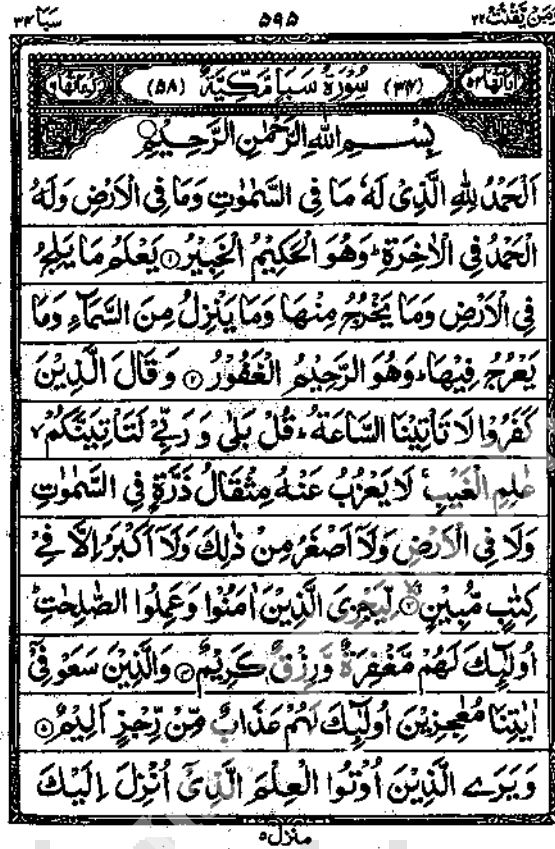 وَمَنْ يَّقْنُتْ ۲۲ ۵۹۵ سَبَا ۳۴
اٰيَاتُهَا ۵۴ (۳۴) سُوْرَةُ سَبَاٍ مَّكِّيَّةٌ (۵۸) رُكُوْعَاتُهَا ۶
بِسْمِ اللهِ الرَّحْمٰنِ الرَّحِيْمِ
اَلْحَمْدُ لِلّٰهِ الَّذِیْ لَهٗ مَا فِی السَّمٰوٰتِ وَمَا فِی الْاَرْضِ وَلَهُ
الْحَمْدُ فِی الْاٰخِرَةِ ؕ وَهُوَ الْحَكِیْمُ الْخَبِیْرُ ۱ یَعْلَمُ مَا یَلِجُ
فِی الْاَرْضِ وَمَا یَخْرُجُ مِنْهَا وَمَا یَنْزِلُ مِنَ السَّمَآءِ وَمَا
یَعْرُجُ فِیْهَا ؕ وَهُوَ الرَّحِیْمُ الْغَفُوْرُ ۲ وَقَالَ الَّذِیْنَ
كَفَرُوْا لَا تَاْتِیْنَا السَّاعَةُ ؕ قُلْ بَلٰی وَرَبِّیْ لَتَاْتِیَنَّكُمْ ۙ
عٰلِمِ الْغَیْبِ ۚ لَا یَعْزُبُ عَنْهُ مِثْقَالُ ذَرَّةٍ فِی السَّمٰوٰتِ
وَلَا فِی الْاَرْضِ وَلَاۤ اَصْغَرُ مِنْ ذٰلِكَ وَلَاۤ اَكْبَرُ اِلَّا فِیْ
كِتٰبٍ مُّبِیْنٍ ۳ لِّیَجْزِیَ الَّذِیْنَ اٰمَنُوْا وَعَمِلُوا الصّٰلِحٰتِ ؕ
اُولٰٓئِكَ لَهُمْ مَّغْفِرَةٌ وَّرِزْقٌ كَرِیْمٌ ۴ وَالَّذِیْنَ سَعَوْ فِیْۤ
اٰیٰتِنَا مُعٰجِزِیْنَ اُولٰٓئِكَ لَهُمْ عَذَابٌ مِّنْ رِّجْزٍ اَلِیْمٌ ۵
وَیَرَی الَّذِیْنَ اُوْتُوا الْعِلْمَ الَّذِیْۤ اُنْزِلَ اِلَیْكَ
منزل ۵